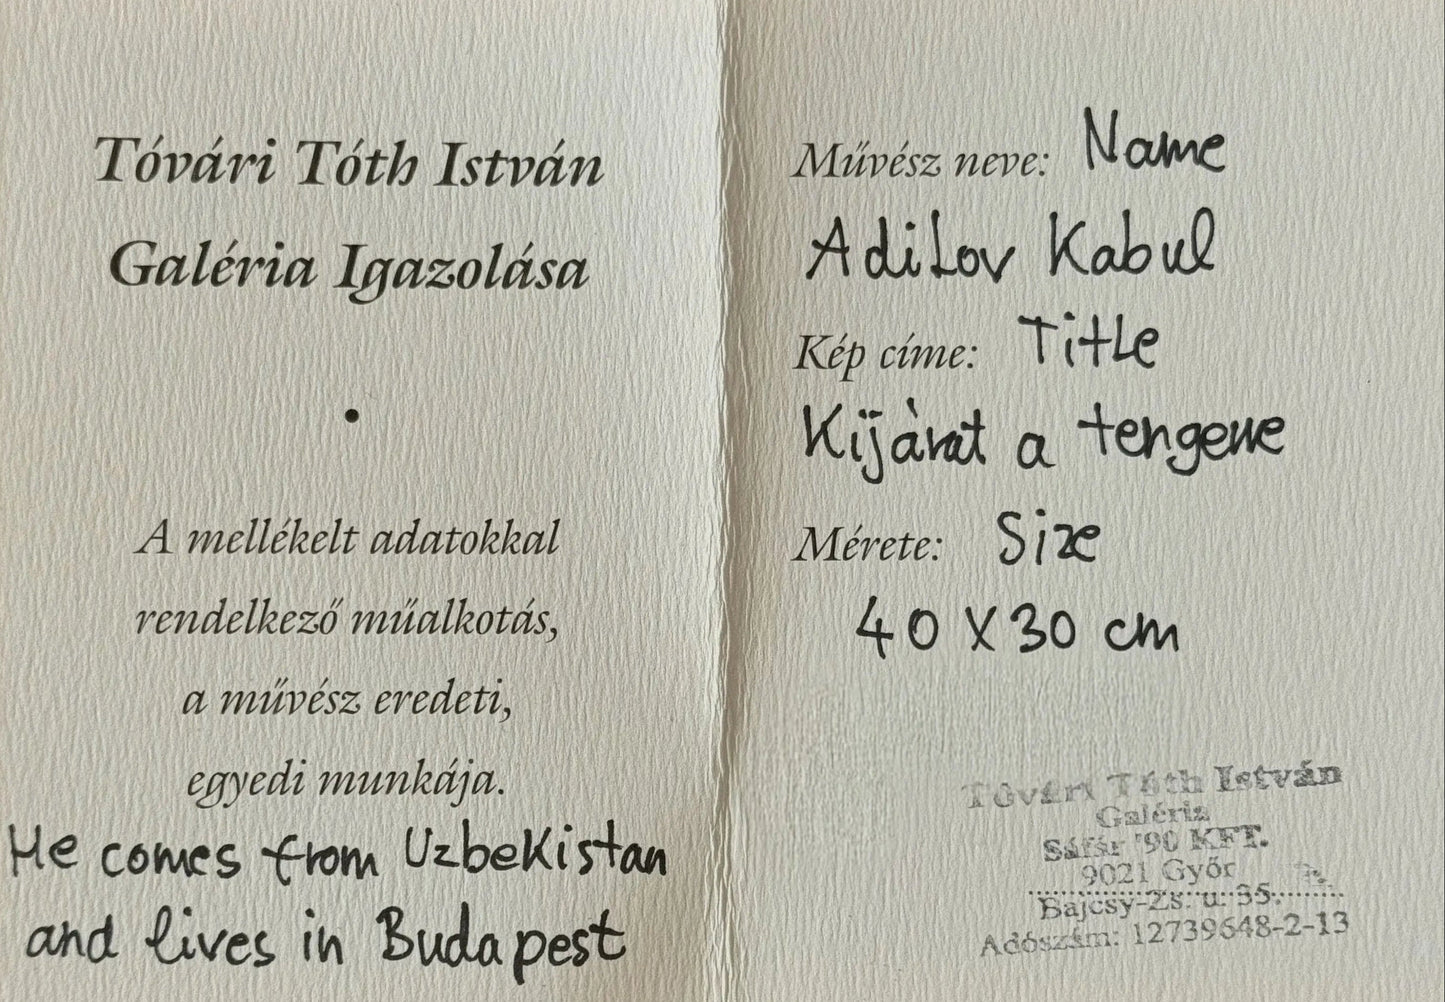 Tóvári Tóth István
Galéria Igazolása
•
A mellékelt adatokkal
rendelkező műalkotás,
a művész eredeti,
egyedi munkája.
He comes from Uzbekistan
and lives in Budapest
Művész neve: Name
Adilov Kabul
Kép címe: Title
Kijárat a tengerre
Mérete: Size
40 X 30 cm
Tóvári Tóth István
Galéria
Sáfár '90 KFT.
9021 Győr
Bajcsy-Zs. u. 35.
Adószám: 12739648-2-13